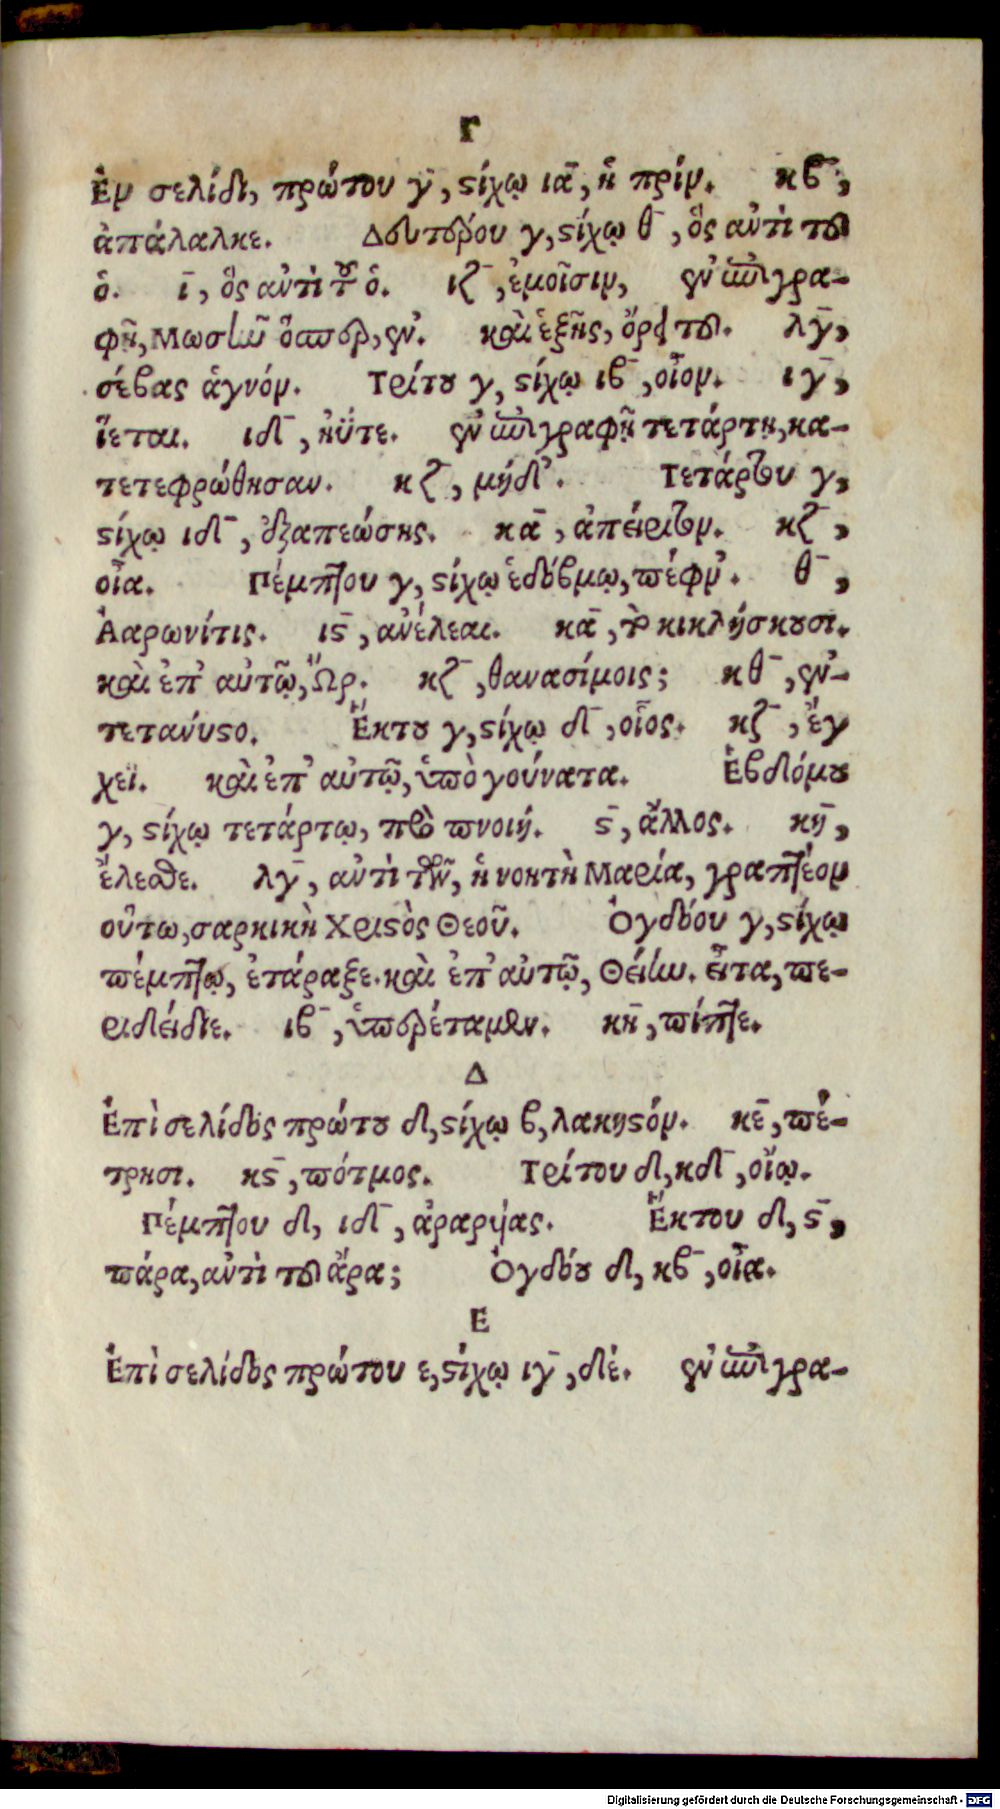 Γ
Ἐν σελίδι, πρώτου γ, ϛίχῳ ια, ἢ πρίν. κβ,
ἀπάλαλκε. Δευτέρου γ, ϛίχῳ θ, ὃς αὐτὶ τοῦ
ὁ. ι, ὃς αὐτὶ τοῦ ὁ. ιζ, ἐμοῖσιν, ἐν ἐπιγρα-
φῇ, Μωσῆν ὅπερ, ἐν. καὶ ἑξῆς, ὄρφ του. λγ,
σέβας ἁγνόν. Τρίτου γ, ϛίχῳ ιβ, οἷον. ιγ,
ἵεται. ιδ, ἠΰτε. ἐν ἐπιγραφῇ τετάρτῃ, κα-
τετεφρώθησαν. κζ, μήδ'. Τετάρτου γ,
ϛίχῳ ιδ, ἐξαπεώσης. κα, ἀπείριτον. κζ,
οἷα. Πέμπτου γ, ϛίχῳ ἑβδόμῳ, πέφν'. θ,
Ἀαρωνίτις. ιϛ, ἀνέλεαι. κα, τὸν κικλήσκουσι.
καὶ ἐπ' αὐτῷ, Ὤρ. κζ, θανασίμοις; κθ, ἐν-
τετανύϛο. Ἕκτου γ, ϛίχῳ δ, οἷος. κζ, ἔγ
χεϊ. καὶ ἐπ' αὐτῷ, ὑπὸ γούνατα. Ἑβδόμου
γ, ϛίχῳ τετάρτῳ, πνοιή. ϛ, ἄλλος. κη,
ἕλεσθε. λγ, αὐτὶ τοῦ, ἡ νοητὴ Μαρία, γραπτέον
οὕτω, σαρκικὴ Χριϛὸς Θεοῦ. Ὀγδόου γ, ϛίχῳ
πέμπτῳ, ἐτάραξε. καὶ ἐπ' αὐτῷ, Θείην. εἶτα, πε-
ριδείδιε. ιβ, ὑπερέταμεν. κη, πίπτε.
Δ
Ἐπὶ σελίδος πρώτου δ, ϛίχῳ β, λακηϛόν. κε, πέ-
τρησι. κϛ, πότμος. Τρίτου δ, κδ, οἵῳ.
Πέμπτου δ, ιδ, ἀραρυίας. Ἕκτου δ, ϛ,
πάρα, αὐτὶ τοῦ ἄρα; Ὀγδόου δ, κβ, οἷα.
Ε
Ἐπὶ σελίδος πρώτου ε, ϛίχῳ ιγ, δέ. ἐν ἐπιγρα-
Digitalisierung gefördert durch die Deutsche Forschungsgemeinschaft - DFG